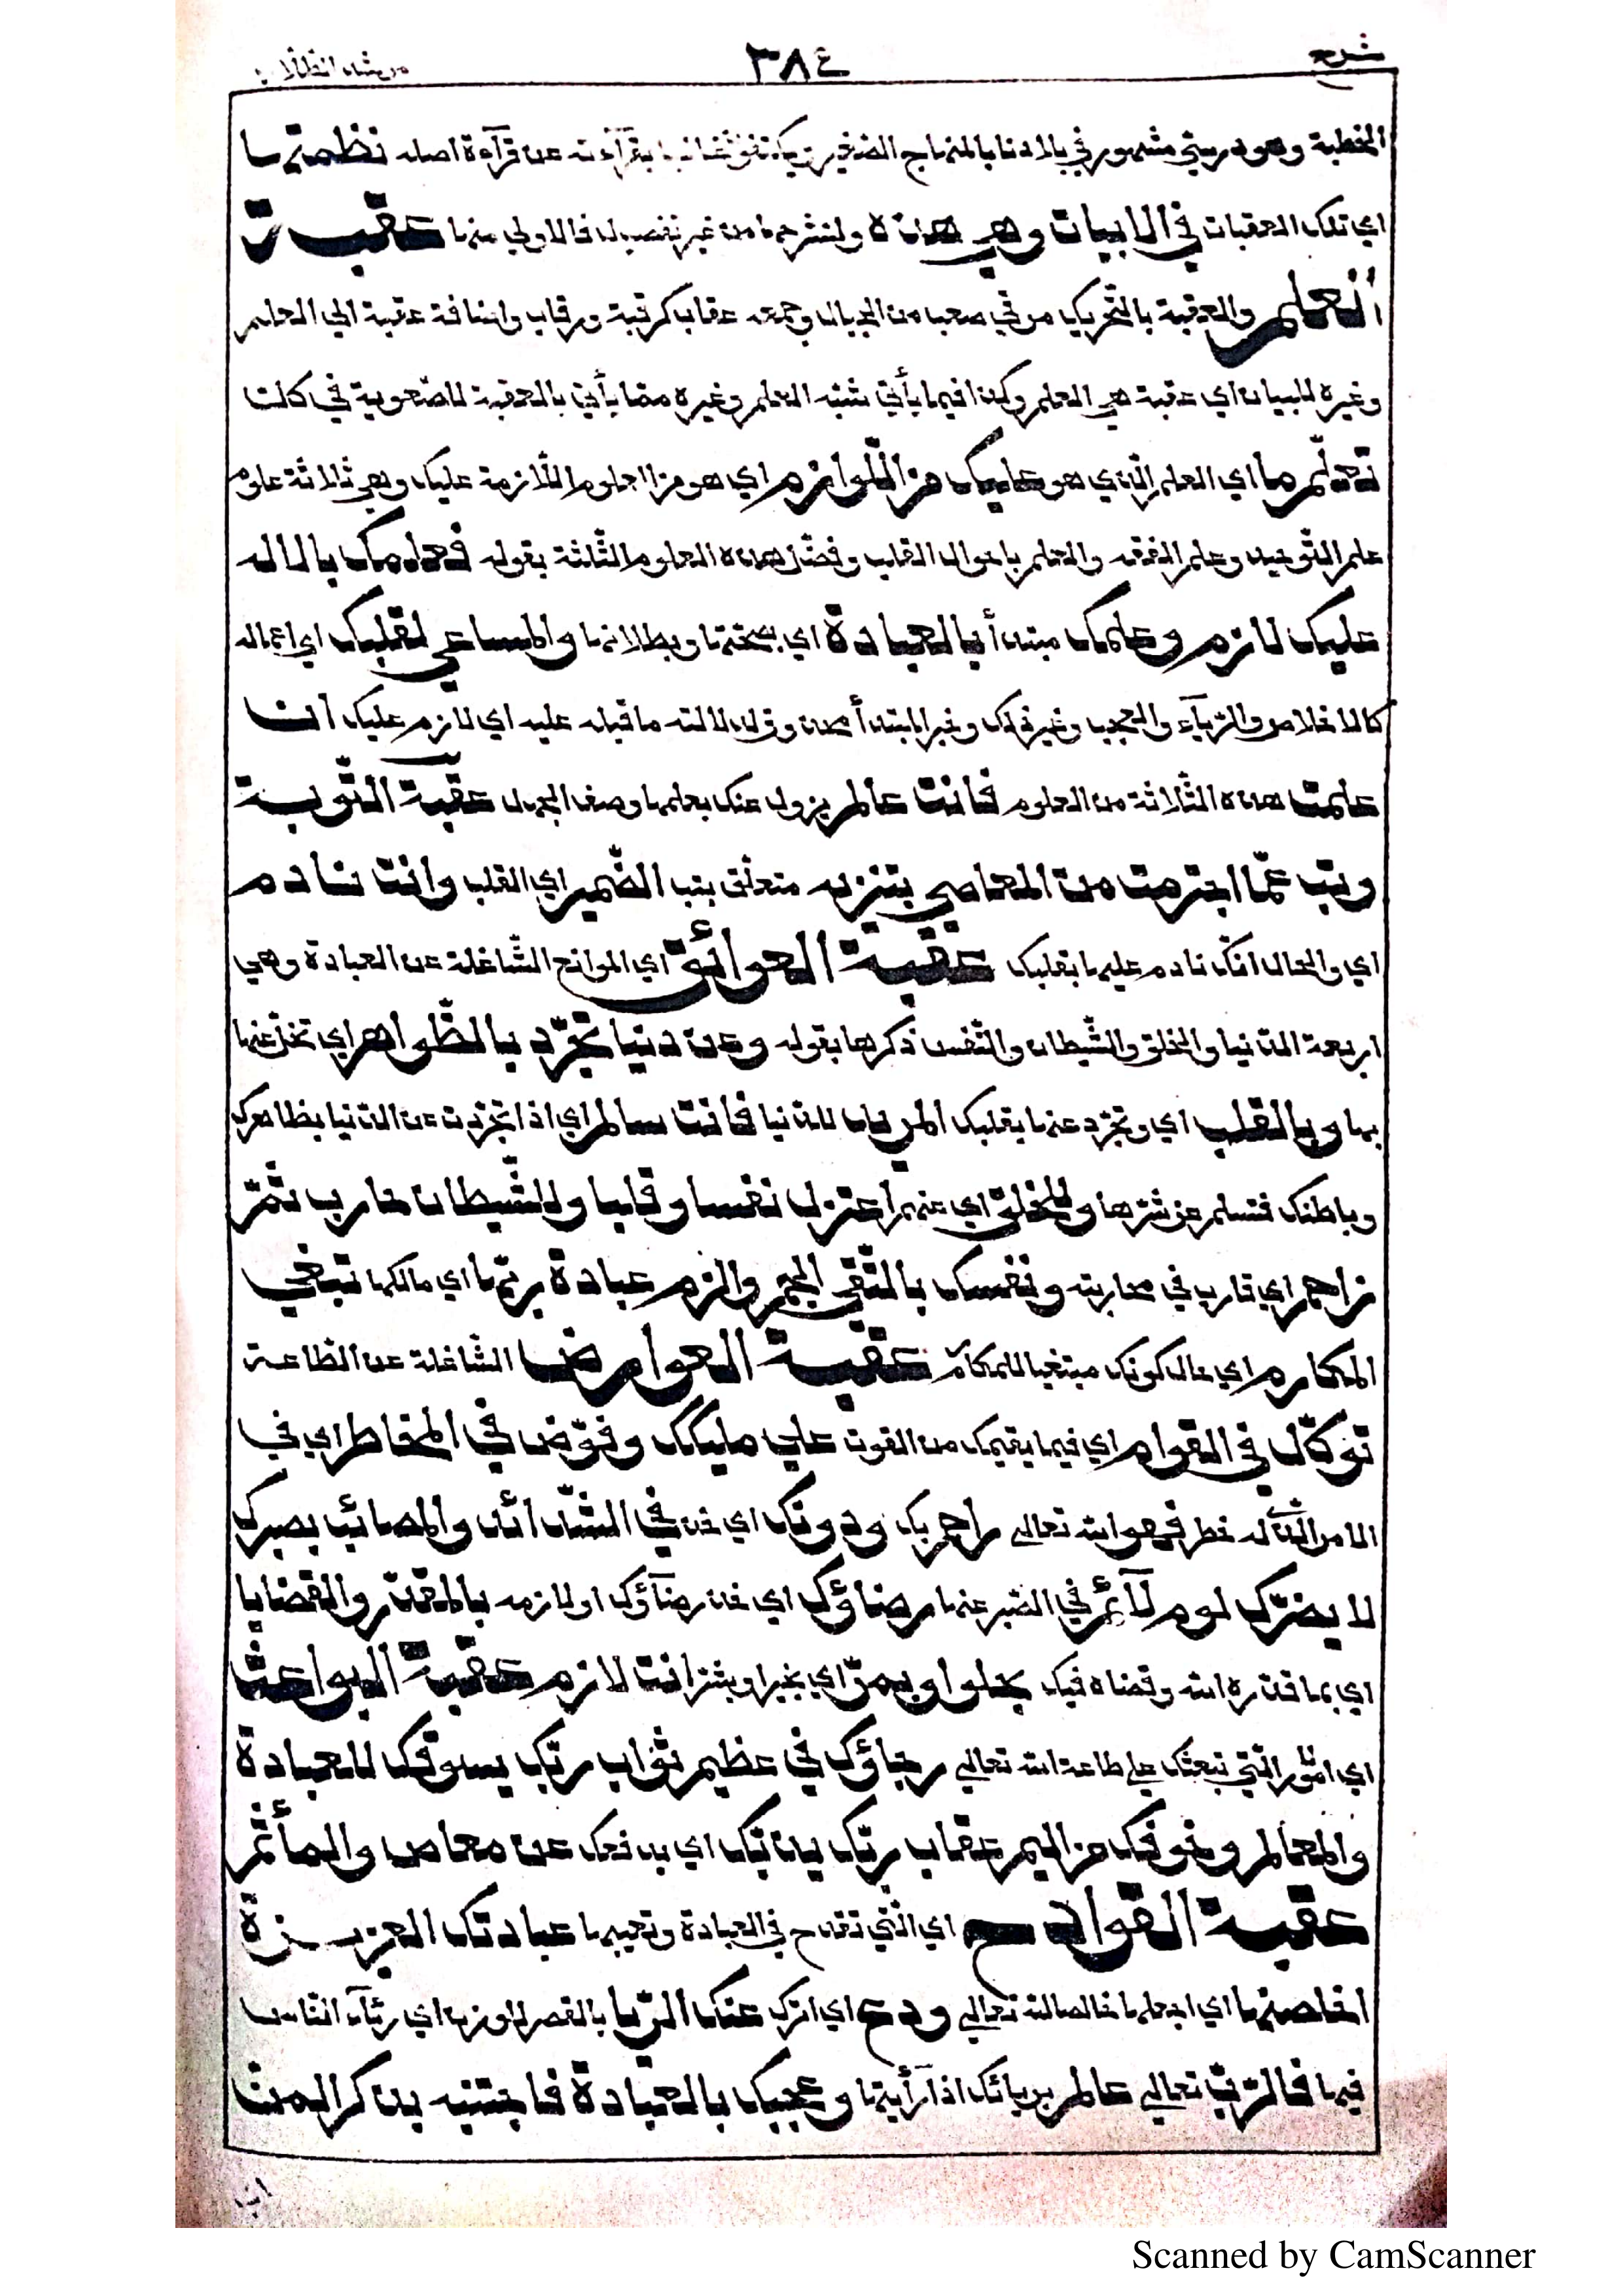 شرح ٣٨٤ مرشد الطلاب
الخطبة وهو درسي مشهور في بلادنا بالمنهاج الصغير يكتفون بقرآءته عن قرآءة اصله نظمتها
اي تلك العقبات في الابيات وهي هذه ولنشرحها من غير تفصيل فالاولى منها عقبة
العلم والعقبة بالتحريك مرقي صعب من الجبال وجمعه عقاب كرقبة ورقاب واضافة عقبة الي العلم
وغيره للبيان اي عقبة هي العلم وكذا فيما يأتي شبّه العلم وغيره مما يأتي بالعقبة للصّعوبة في كلٍّ
تعلّم ما اي العلم الّذي هو عليك من اللّوازم اي هو من العلوم اللّازمة عليك وهي ثلاثة علوم
علم التّوحيد وعلم الفقه والعلم باحوال القلب وفصّل هذه العلوم الثّلثة بقوله فعلمك بالاله
عليك لازم وعلمك مبتدأ بالعبادة اي بصحّتها وبطلانها والمساعي لقلبك اي اعماله
كالاخلاص والرّيآء والعجب وغير ذلك وخبر المبتدأ محذوف لدلالة ما قبله عليه اي لازم عليك ان
علمت هذه الثّلاثة من العلوم فانت عالم يزول عنك بعلمها وصف الجهل عقبة التّوبة
وتب عمّا اجترمت من المعاصي بتنزيه متعلّق بتب الضّمير اي القلب وانت نادم
اي والحال انّك نادم عليها بقلبك عقبة العوائق اي الموانع الشّاغلة عن العبادة وهي
اربعة الدّنيا والخلق والشّيطان والنّفس ذكرها بقوله وعن دنيا تجرّد بالظّواهر اي تخلّ عنها
بها وبالقلب اي وتجرّد عنها بقلبك المريد للدّنيا فانت سالم اي اذا تجرّدت عن الدّنيا بظاهرك
وباطنك فتسلم عن شرّها وللخلق اي عنهم اعتزل نفسا وقلبا وللشّيطان حارب ثمّ
زاحم اي قارب في محاربته ونفسك بالتّقى الجم والزم عبادة ربّها اي مالكها تبتغي
المكارم اي حال كونك مبتغيا للمكارم عقبة العوارض الشّاغلة عن الطّاعة
توكّل في القوام اي فيما يقيمك من القوت على مليكك وفوّض في المخاطر اي في
الامر الّذي له خطر فهو الله تعالى راحم بك ودونك اي خذ في الشّدائد والمصائب بصبرك
لا يضرّك لوم لآئم في الصّبر عنها رضاؤك اي خذ رضآؤك او لازمه بالمقدّر والقضايا
اي بما قدّره الله وقضاه فيك بحلو او بمرّ اي بخير او بشرّ انت لازم عقبة البواعث
اي الامور الّتي تبعثك على طاعة الله تعالى رجاؤك في عظيم ثواب ربّك يسوقك للعبادة
والمعالم وخوفك من اليم عقاب ربّك يذبّك اي يدفعك عن معاص والمأثم
عقبة القوادح اي الّتي تقدح في العبادة وتعيبها عبادتك العزيزة
اخلصنها اي اجعلها خالصا لله تعالى ودع اي اترك عنك الرّيا بالقصر للوزن اي ريآء النّاس
فيها فالرّبّ تعالى عالم بريائك اذا رأيتها وعجبك بالعبادة فاجتنبه بذكر المنّ